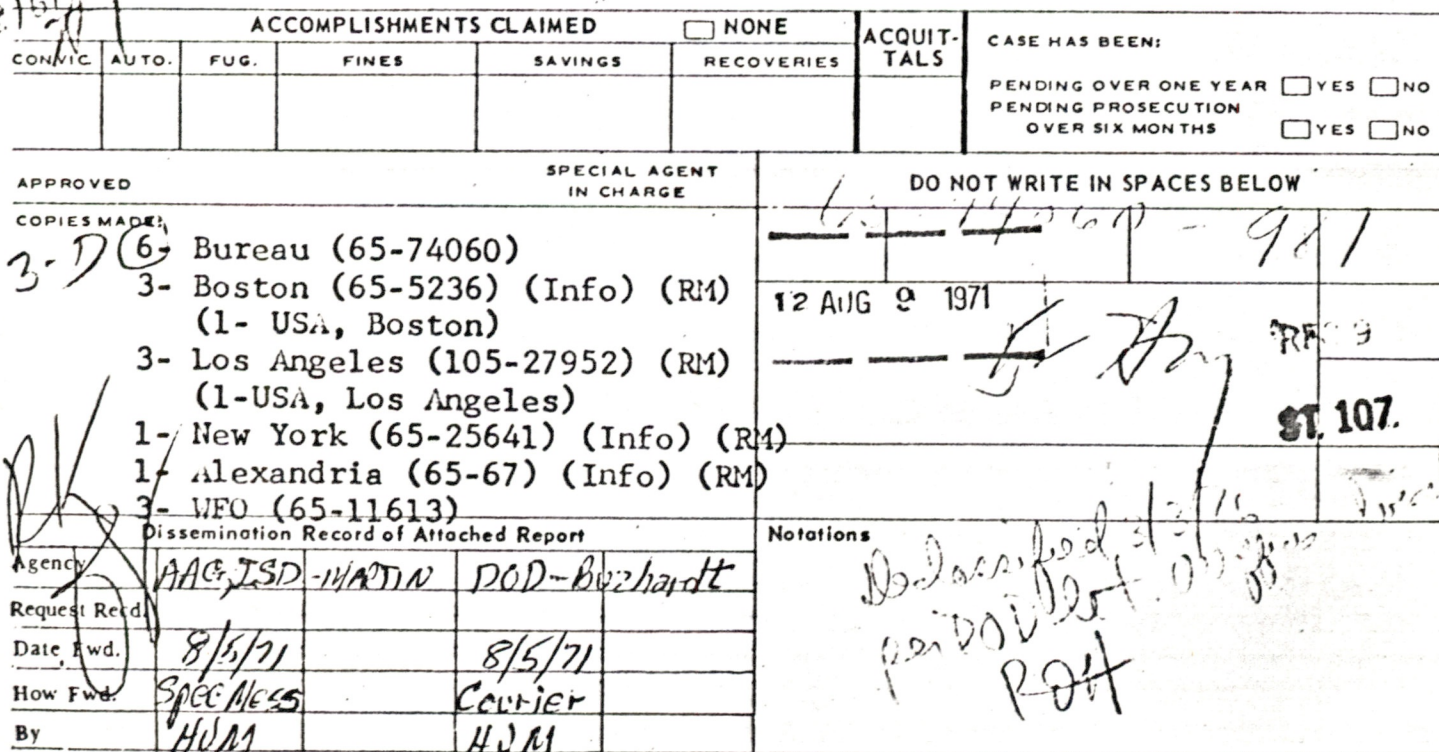 ACCOMPLISHMENTS CLAIMED ☐ NONE
ACQUIT-
TALS
CASE HAS BEEN:
CONVIC. AUTO. FUG. FINES SAVINGS RECOVERIES
PENDING OVER ONE YEAR ☐ YES ☐ NO
PENDING PROSECUTION
OVER SIX MONTHS ☐ YES ☐ NO
APPROVED
SPECIAL AGENT
IN CHARGE
DO NOT WRITE IN SPACES BELOW
COPIES MADE:
3-D 6- Bureau (65-74060)
3- Boston (65-5236) (Info) (RM)
(1- USA, Boston)
3- Los Angeles (105-27952) (RM)
(1-USA, Los Angeles)
1- New York (65-25641) (Info) (RM)
1- Alexandria (65-67) (Info) (RM)
3- WFO (65-11613)
65-74060-981
12 AUG 9 1971
ST. 107.
Dissemination Record of Attached Report
Agency AAG, ISD -MARTIN DOD-Buzhardt
Request Recd.
Date Fwd. 8/5/71 8/5/71
How Fwd. Spec Mess Courier
By HJM HJM
Notations
Declassified
per
ROH